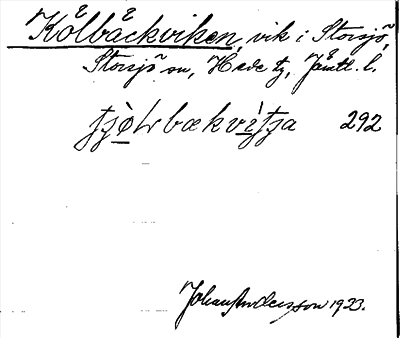 Kölbäckviken, vik i Storsjö,
Storsjö sn, Hede tg, Jämtl. l.
292
Johan Andersson 1933.